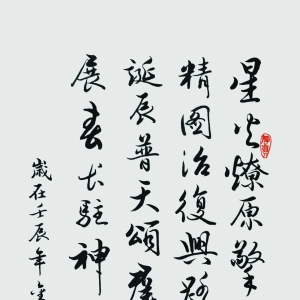 星火燎原擎
精图治復興
誕辰普天頌
展春长駐神
歲在壬辰年